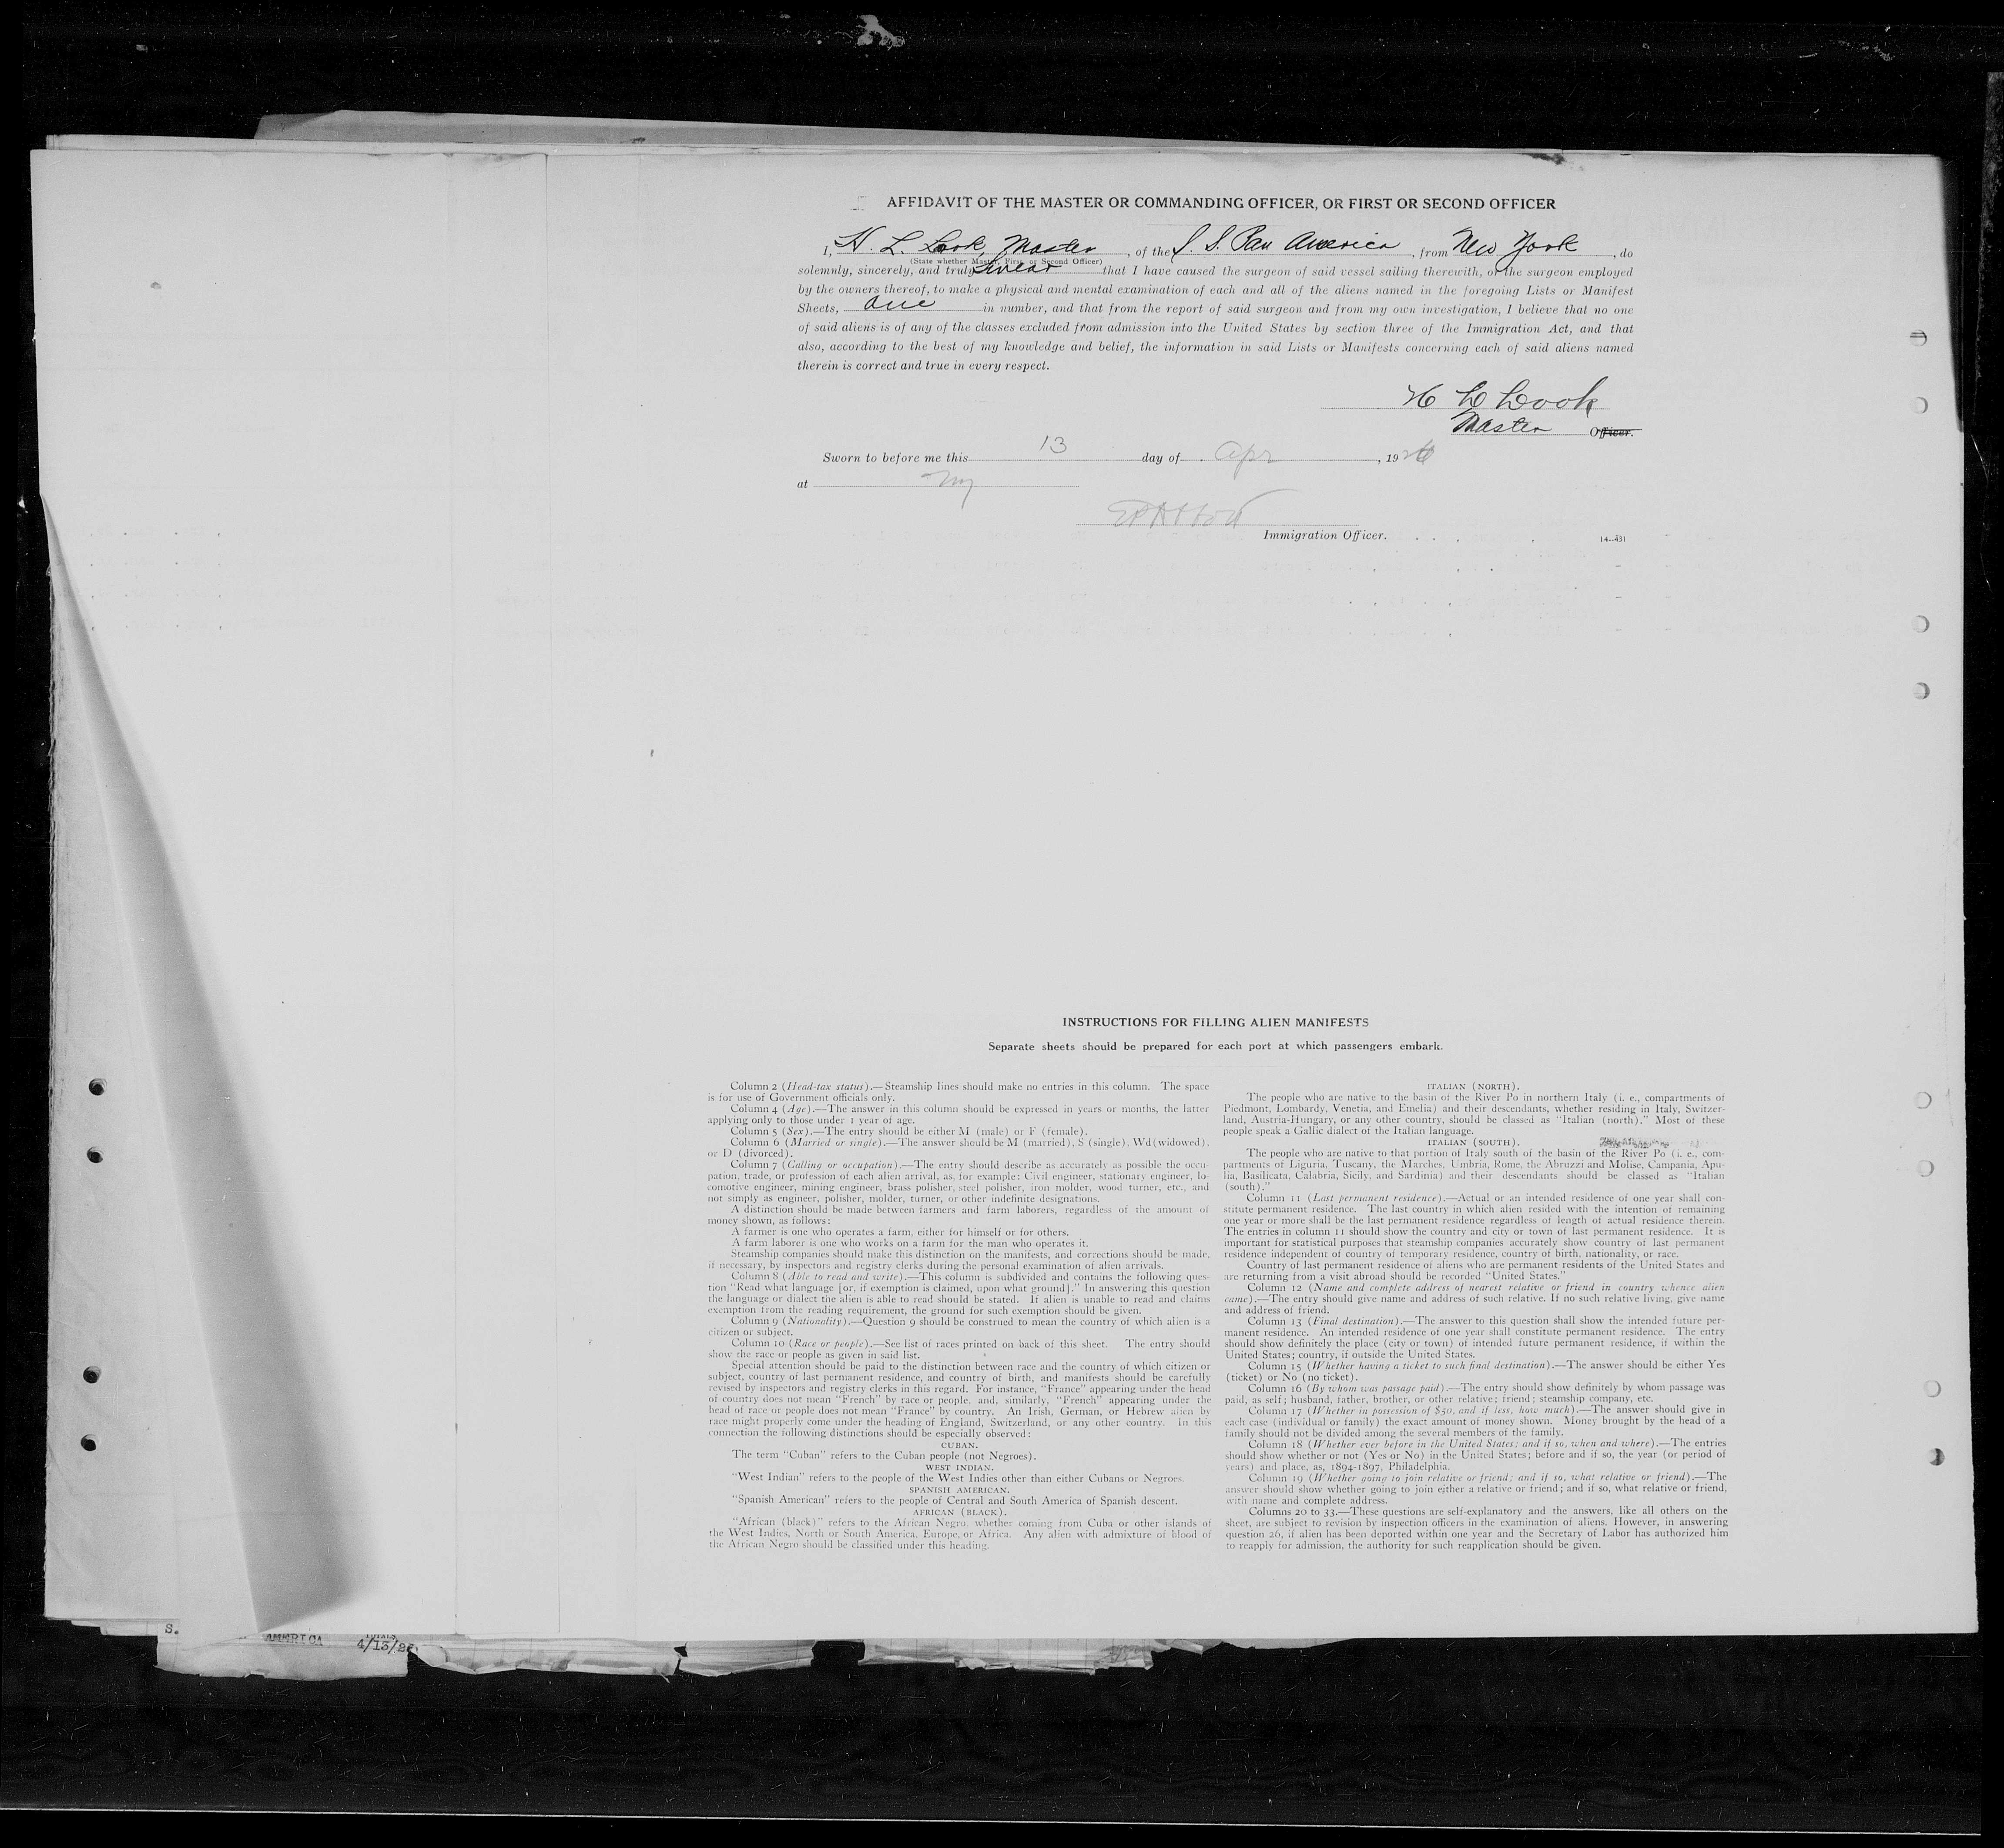 AFFIDAVIT OF THE MASTER OR COMMANDING OFFICER, OR FIRST OR SECOND OFFICER
I, H. L. Look, Master, of the S. S. Pan America, from New York, do
(State whether Master, First, or Second Officer)
solemnly, sincerely, and truly swear that I have caused the surgeon of said vessel sailing therewith, or the surgeon employed
by the owners thereof, to make a physical and mental examination of each and all of the aliens named in the foregoing Lists or Manifest
Sheets, one in number, and that from the report of said surgeon and from my own investigation, I believe that no one
of said aliens is of any of the classes excluded from admission into the United States by section three of the Immigration Act, and that
also, according to the best of my knowledge and belief, the information in said Lists or Manifests concerning each of said aliens named
therein is correct and true in every respect.
H L Look
Master Officer.
Sworn to before me this 13 day of Apr, 1926
at NY
Immigration Officer.
14-431
INSTRUCTIONS FOR FILLING ALIEN MANIFESTS
Separate sheets should be prepared for each port at which passengers embark.
Column 2 (Head-tax status).—Steamship lines should make no entries in this column. The space
is for use of Government officials only.
Column 4 (Age).—The answer in this column should be expressed in years or months, the latter
applying only to those under 1 year of age.
Column 5 (Sex).—The entry should be either M (male) or F (female).
Column 6 (Married or single).—The answer should be M (married), S (single), Wd (widowed),
or D (divorced).
Column 7 (Calling or occupation).—The entry should describe as accurately as possible the occu-
pation, trade, or profession of each alien arrival, as, for example: Civil engineer, stationary engineer, lo-
comotive engineer, mining engineer, brass polisher, steel polisher, iron molder, wood turner, etc., and
not simply as engineer, polisher, molder, turner, or other indefinite designations.
A distinction should be made between farmers and farm laborers, regardless of the amount of
money shown, as follows:
A farmer is one who operates a farm, either for himself or for others.
A farm laborer is one who works on a farm for the man who operates it.
Steamship companies should make this distinction on the manifests, and corrections should be made,
if necessary, by inspectors and registry clerks during the personal examination of alien arrivals.
Column 8 (Able to read and write).—This column is subdivided and contains the following ques-
tion "Read what language [or, if exemption is claimed, upon what ground]." In answering this question
the language or dialect the alien is able to read should be stated. If alien is unable to read and claims
exemption from the reading requirement, the ground for such exemption should be given.
Column 9 (Nationality).—Question 9 should be construed to mean the country of which alien is a
citizen or subject.
Column 10 (Race or people).—See list of races printed on back of this sheet. The entry should
show the race or people as given in said list.
Special attention should be paid to the distinction between race and the country of which citizen or
subject, country of last permanent residence, and country of birth, and manifests should be carefully
revised by inspectors and registry clerks in this regard. For instance, "France" appearing under the head
of country does not mean "French" by race or people, and, similarly, "French" appearing under the
head of race or people does not mean "France" by country. An Irish, German, or Hebrew alien by
race might properly come under the heading of England, Switzerland, or any other country. In this
connection the following distinctions should be especially observed:
CUBAN.
The term "Cuban" refers to the Cuban people (not Negroes).
WEST INDIAN.
"West Indian" refers to the people of the West Indies other than either Cubans or Negroes.
SPANISH AMERICAN.
"Spanish American" refers to the people of Central and South America of Spanish descent.
AFRICAN (BLACK).
"African (black)" refers to the African Negro, whether coming from Cuba or other islands of
the West Indies, North or South America, Europe, or Africa. Any alien with admixture of blood of
the African Negro should be classified under this heading.
ITALIAN (NORTH).
The people who are native to the basin of the River Po in northern Italy (i. e., compartments of
Piedmont, Lombardy, Venetia, and Emelia) and their descendants, whether residing in Italy, Switzer-
land, Austria-Hungary, or any other country, should be classed as "Italian (north)." Most of these
people speak a Gallic dialect of the Italian language.
ITALIAN (SOUTH).
The people who are native to that portion of Italy south of the basin of the River Po (i. e., com-
partments of Liguria, Tuscany, the Marches, Umbria, Rome, the Abruzzi and Molise, Campania, Apu-
lia, Basilicata, Calabria, Sicily, and Sardinia) and their descendants should be classed as "Italian
(south)."
Column 11 (Last permanent residence).—Actual or an intended residence of one year shall con-
stitute permanent residence. The last country in which alien resided with the intention of remaining
one year or more shall be the last permanent residence regardless of length of actual residence therein.
The entries in column 11 should show the country and city or town of last permanent residence. It is
important for statistical purposes that steamship companies accurately show country of last permanent
residence independent of country of temporary residence, country of birth, nationality, or race.
Country of last permanent residence of aliens who are permanent residents of the United States and
are returning from a visit abroad should be recorded "United States."
Column 12 (Name and complete address of nearest relative or friend in country whence alien
came).—The entry should give name and address of such relative. If no such relative living, give name
and address of friend.
Column 13 (Final destination).—The answer to this question shall show the intended future per-
manent residence. An intended residence of one year shall constitute permanent residence. The entry
should show definitely the place (city or town) of intended future permanent residence, if within the
United States; country, if outside the United States.
Column 15 (Whether having a ticket to such final destination).—The answer should be either Yes
(ticket) or No (no ticket).
Column 16 (By whom was passage paid).—The entry should show definitely by whom passage was
paid, as self; husband, father, brother, or other relative; friend; steamship company, etc.
Column 17 (Whether in possession of $50, and if less, how much).—The answer should give in
each case (individual or family) the exact amount of money shown. Money brought by the head of a
family should not be divided among the several members of the family.
Column 18 (Whether ever before in the United States; and if so, when and where).—The entries
should show whether or not (Yes or No) in the United States; before and if so, the year (or period of
years) and place, as, 1894-1897, Philadelphia.
Column 19 (Whether going to join relative or friend; and if so, what relative or friend).—The
answer should show whether going to join either a relative or friend; and if so, what relative or friend,
with name and complete address.
Columns 20 to 33.—These questions are self-explanatory and the answers, like all others on the
sheet, are subject to revision by inspection officers in the examination of aliens. However, in answering
question 26, if alien has been deported within one year and the Secretary of Labor has authorized him
to reapply for admission, the authority for such reapplication should be given.
S. AMERICA 4/13/26